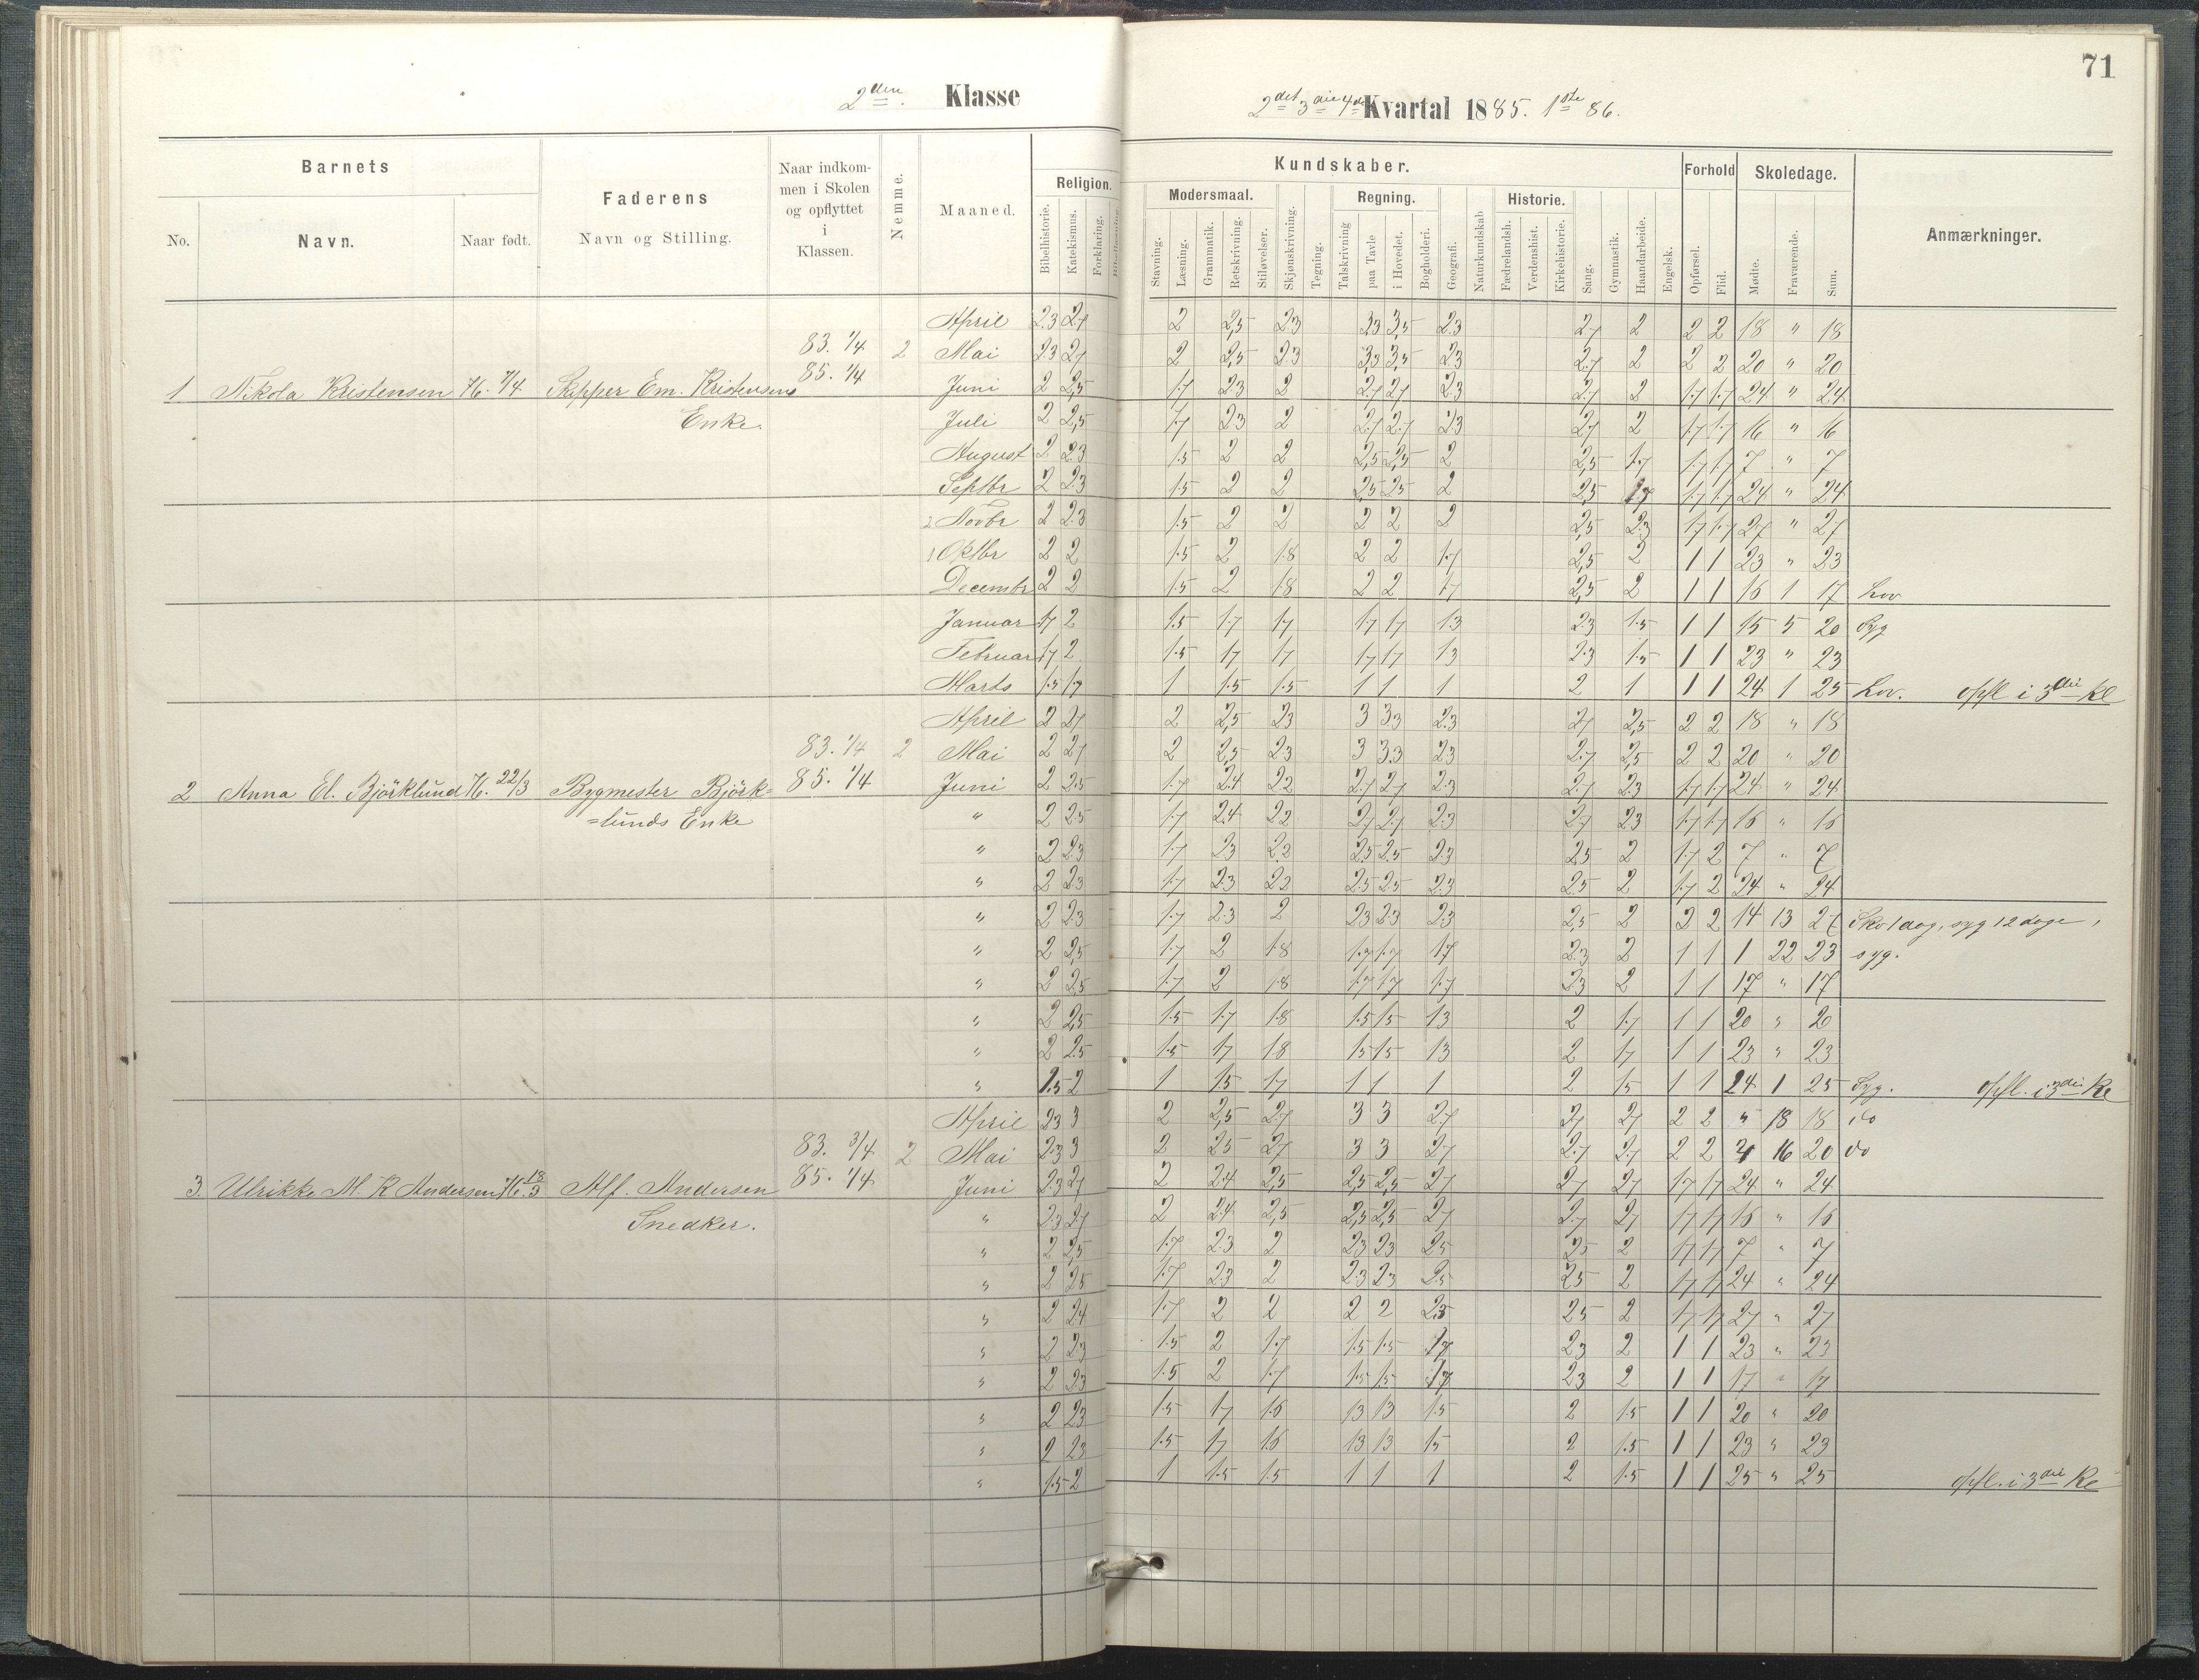 71
2den. Klasse
2det 3die 4de Kvartal 1885. 1ste 86.
Barnets
No. Navn. Naar født.
Faderens
Navn og Stilling.
Naar indkom-
men i Skolen
og opflyttet
i
Klassen.
Nemme.
Maaned.
Religion.
Bibelhistorie. Katekismus. Forklaring.
Kundskaber.
Modersmaal.
Stavning. Læsning. Grammatik. Retskrivning. Stiløvelser. Skjønskrivning. Tegning.
Regning.
Talskrivning paa Tavle i Hovedet. Bogholderi. Geografi. Naturkundskab
Historie.
Fædrelandsh. Verdenshist. Kirkehistorie. Sang. Gymnastik. Haandarbeide. Engelsk.
Forhold
Opførsel. Flid.
Skoledage.
Mødte. Fraværende. Sum.
Anmærkninger.
April 2.3 2.7 2 2,5 2.3 3.3 3,5 2.3 2.7 2 2 2 18 " 18
83. 1/4 2 Mai 2.3 2.7 2 2,5 2.3 3,3 3,5 2.3 2.7 2 2 2 20 " 20
1 Nikola Kristensen 76. 7/4 Skipper Em. Kristensens 85. 1/4 Juni 2 2,5 1.7 2.3 2 2.7 2.7 2.3 2.7 2 1.7 1.7 24 " 24
Enke. Juli 2 2,5 1.7 2.3 2 2.7 2.7 2.3 2.7 2 1.7 1.7 16 " 16
August 2 2.3 1.5 2 2 2,5 2,5 2 2,5 1.7 1.7 1.7 7 " 7
Septbr 2 2.3 1.5 2 2 2,5 2.5 2 2.5 1.7 1.7 1.7 24 " 24
2 Novbr 2 2.3 1.5 2 2 2 2 2 2,5 2.3 1.7 1.7 27 " 27
1 Oktbr 2 2 1.5 2 1.8 2 2 1.7 2,5 2 1 1 23 " 23
Decembr 2 2 1.5 2 1.8 2 2 1.7 2,5 2 1 1 16 1 17 Lov
Januar 1.7 2 1.5 1.7 1.7 1.7 1.7 1.3 2.3 1.5 1 1 15 5 20 Syg
Februar 1.7 2 1.5 1.7 1.7 1.7 1.7 1.3 2.3 1.5 1 1 23 " 23
Marts 1.5 1.7 1 1.5 1.5 1 1 1 2 1 1 1 24 1 25 Lov. opfl i 3die Kl
April 2 2.7 2 2,5 2.3 3 3.3 2.3 2.7 2,5 2 2 18 " 18
83. 1/4 2 Mai 2 2.7 2 2,5 2.3 3 3.3 2.3 2.7 2,5 2 2 20 " 20
2 Anna El. Björklund 76. 22/3 Bygmester Björk= 85. 1/4 Juni 2 2.5 1.7 2.4 2.2 2.7 2.7 2.3 2.7 2.3 1.7 1.7 24 " 24
=lunds Enke " 2 2.5 1.7 2.4 2.2 2.7 2.7 2.3 2.7 2.3 1.7 1.7 16 " 16
" 2 2.3 1.7 2.3 2.2 2.5 2.5 2.3 2.5 2 1.7 2 7 " 7
" 2 2.3 1.7 2.3 2.2 2.5 2.5 2.3 2.5 2 1.7 2 24 " 24
" 2 2.3 1.7 2.3 2 2.3 2.3 2.3 2,5 2 2 2 14 13 27 Sko 1 dag, syg 12 dage,
" 2 2,5 1.7 2 1.8 1.7 1.7 1.7 2.3 2 1 1 1 22 23 syg.
" 2 2,5 1.7 2 1.8 1.7 1.7 1.7 2.3 2 1 1 17 " 17
" 2 2,5 1.5 1.7 1.8 1.5 1.5 1.3 2 1.7 1 1 20 " 20
" 2 2.5 1.5 1.7 1.8 1.5 1.5 1.3 2 1.7 1 1 23 " 23
" 1.5 2 1 1.5 1.7 1 1 1 2 1.5 1 1 24 1 25 Syg. opfl. i 3die Kl
April 2.3 3 2 2,5 2.7 3 3 2.7 2.7 2.7 2 2 " 18 18 do
83. 3/4 2 Mai 2.3 3 2 2.5 2.7 3 3 2.7 2.7 2.7 2 2 4 16 20 do
3. Ulrikke M. K Andersen 76. 13/3 Alf. Andersen 85. 1/4 Juni 2.3 2.7 2 2.4 2,5 2,5 2,5 2.7 2.7 2.7 1.7 1.7 24 " 24
Snedker. " 2.3 2.7 2 2.4 2,5 2,5 2,5 2.7 2.7 2.7 1.7 1.7 16 " 16
" 2 2,5 1.7 2.3 2 2.3 2.3 2.5 2.5 2 1.7 1.7 7 " 7
" 2 2.5 1.7 2.3 2 2.3 2.3 2.5 2.5 2 1.7 1.7 24 " 24
" 2 2.4 1.7 2 2 2 2 2.3 2.5 2 1.7 1.7 27 " 27
" 2 2.3 1.5 2 1.7 1.5 1.5 1.7 2.3 2 1 1 23 " 23
" 2 2.3 1.5 2 1.7 1.5 1.5 1.7 2.3 2 1 1 17 " 17
" 2 2.3 1.5 1.7 1.6 1.3 1.3 1.5 2 1.5 1 1 20 " 20
" 2 2.3 1.5 1.7 1.6 1.3 1.3 1.5 2 1.5 1 1 23 " 23
" 1.5 2 1 1.5 1.5 1 1 1 2 1.5 1 1 25 " 25 opfl. i 3die Kl